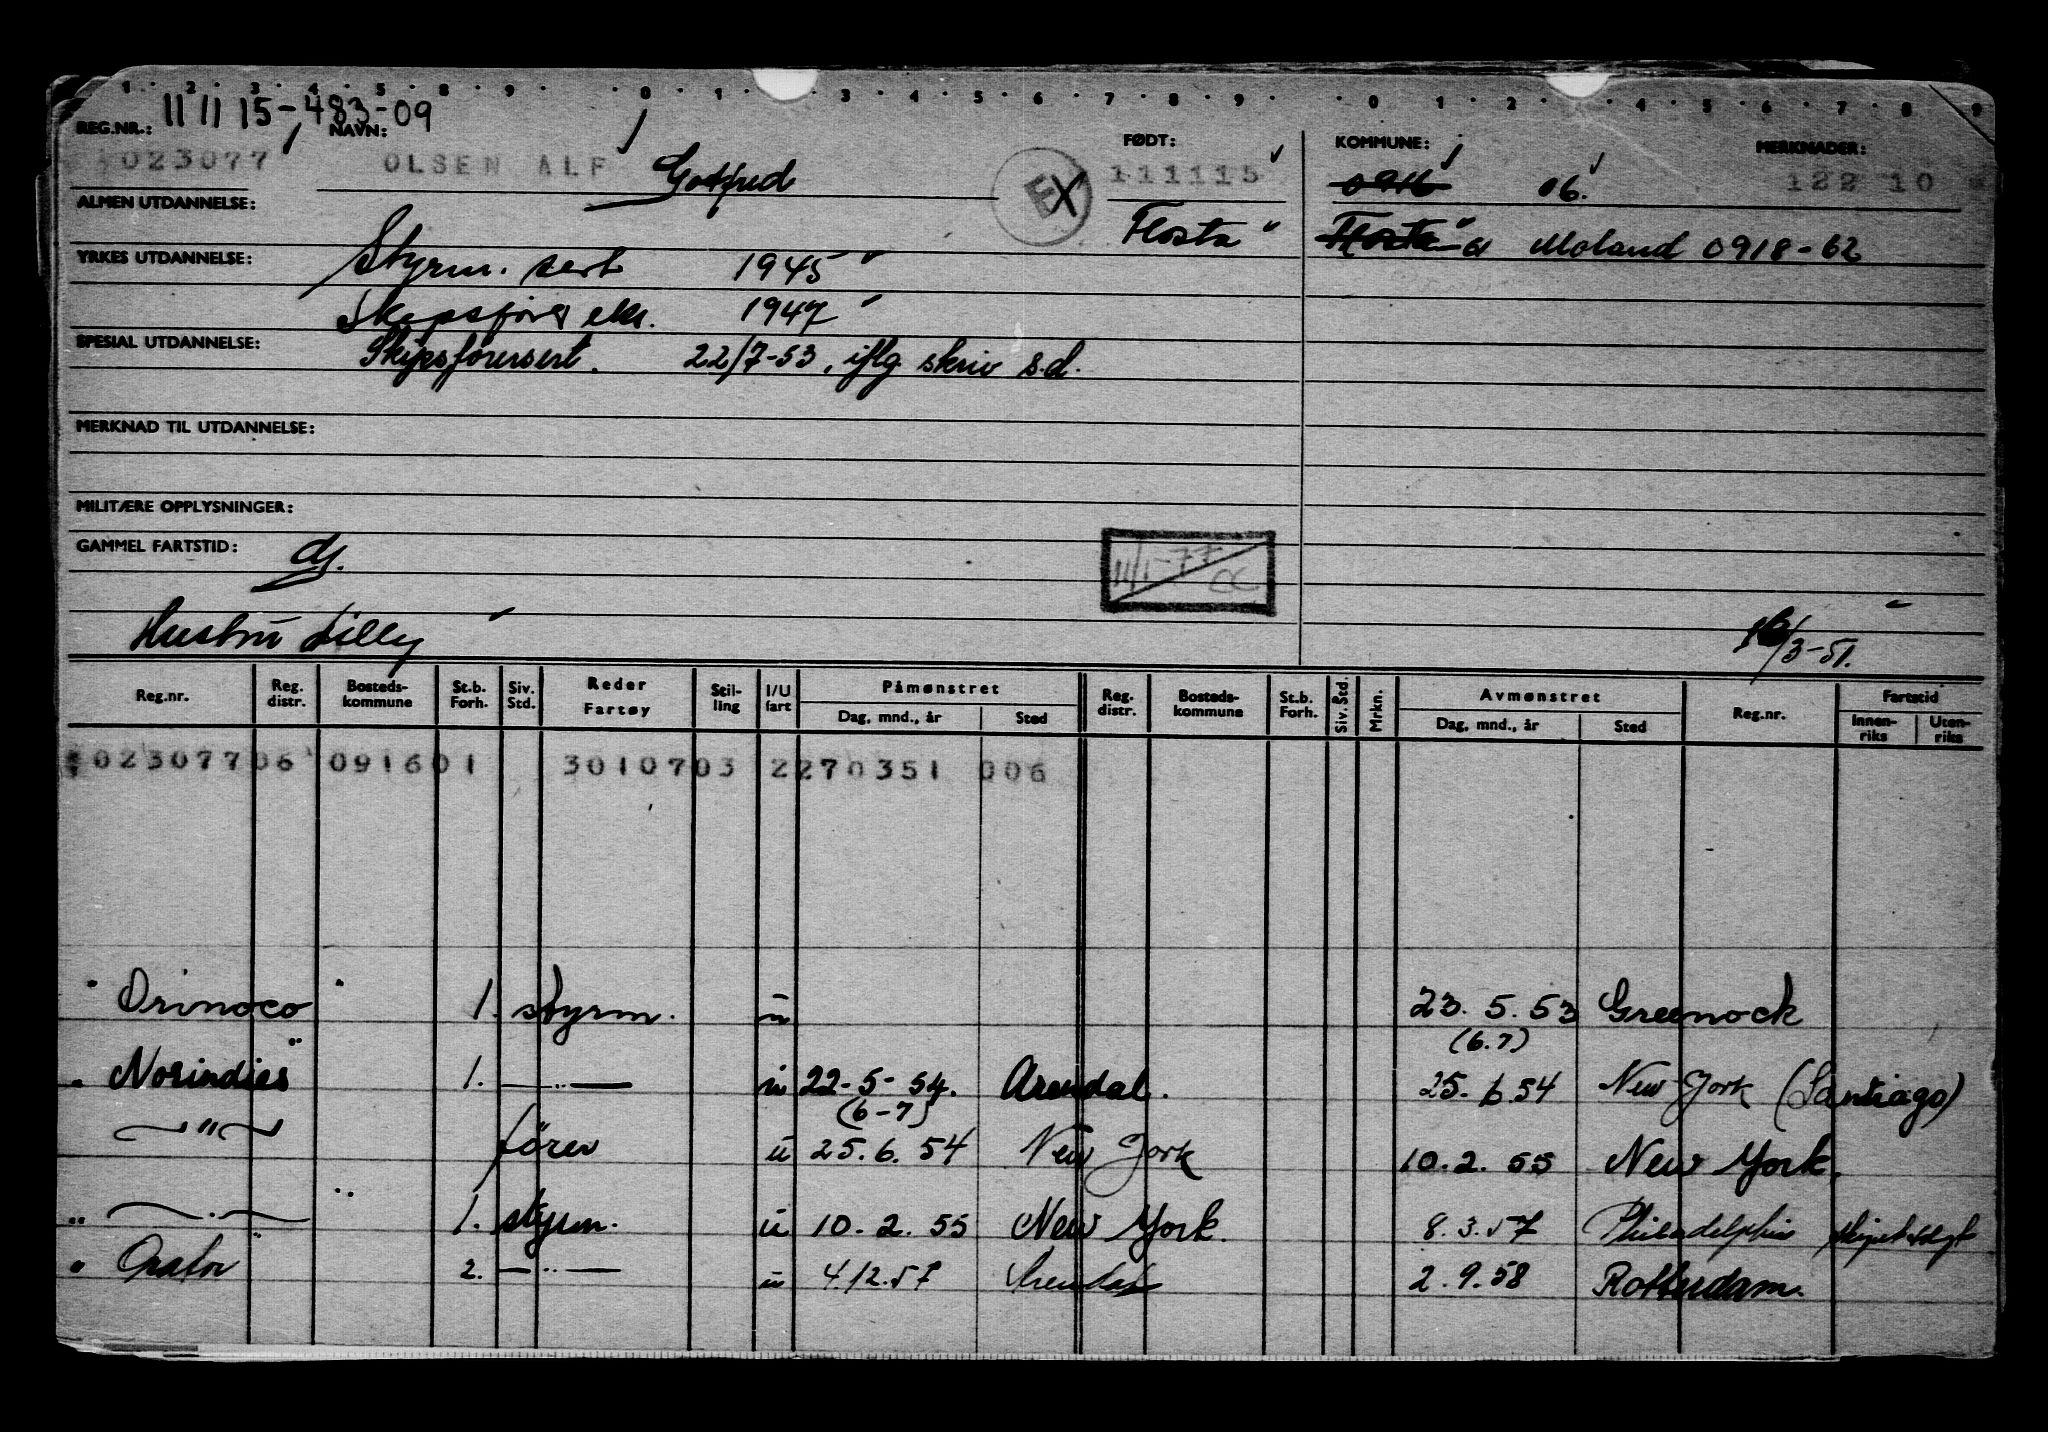 1 · 2 · 3 · 4 · 5 · 8 · 9 · · 0 · · 3 · 4 · 5 · 6 · 7 · 8 · 9 · · 0 · 1 · 2 · · 4 · 5 · 6 · 7 · 8 · 9
11 11 15 - 483-09
REG.NR.: NAVN: FØDT: KOMMUNE: MERKNADER:
023077 OLSEN ALF Gotfred EX 111115 0916 06. 122 10
ALMEN UTDANNELSE: Flosta " Flosta " Moland 0918-62
YRKES UTDANNELSE: Styrm. sert 1945 "
Skipsfører eks. 1947 "
SPESIAL UTDANNELSE: Skipsførersert. 22/7-53, iflg. skriv s.d.
MERKNAD TIL UTDANNELSE:
MILITÆRE OPPLYSNINGER:
GAMMEL FARTSTID: dj. 11/1-77 CC
Hustru Lilly " 16/3-51.
Reg.nr. Reg. distr. Bosteds-kommune St.b. Forh. Siv. Std. Reder Fartøy Stil-ling I/U fart Påmønstret Reg. distr. Bosteds-kommune St.b. Forh. Siv. Std. Mrkn. Avmønstret Reg.nr. Fartstid
Dag, mnd., år Sted Dag, mnd., år Sted Innen-riks Uten-riks
023077 06 0916 01 3010703 2270351 006
" Orinoco " 1. styrm. u 23.5.53 Greenock
(6.7)
" Norindies " 1. — " — u 22-5-54. Arendal. 25.6.54 New York (Santiago)
(6-7)
— " — fører u 25.6.54 New York 10.2.55 New York.
" — " — " 1. styrm. u 10.2.55 New York. 8.3.57 Philadelphia skipet solgt
" Orator " 2. — " — u 4.12.57 Arendal 2.9.58 Rotterdam.